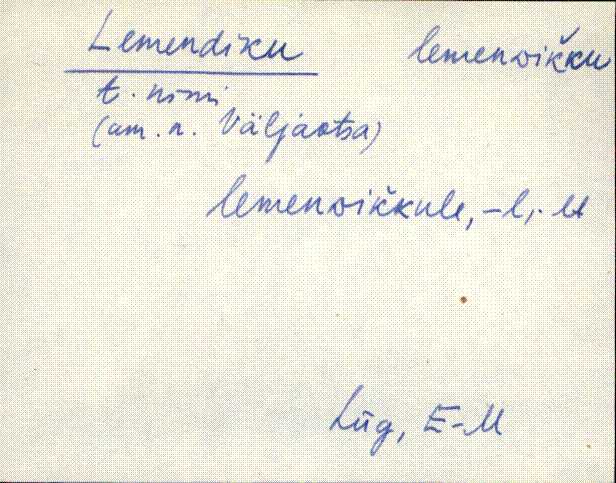 Lemendiku lemenᴅikku
t. nimi
(am. n. Väljaotsa)
lemenᴅikkule, -l, -lt
Lüg, E-M